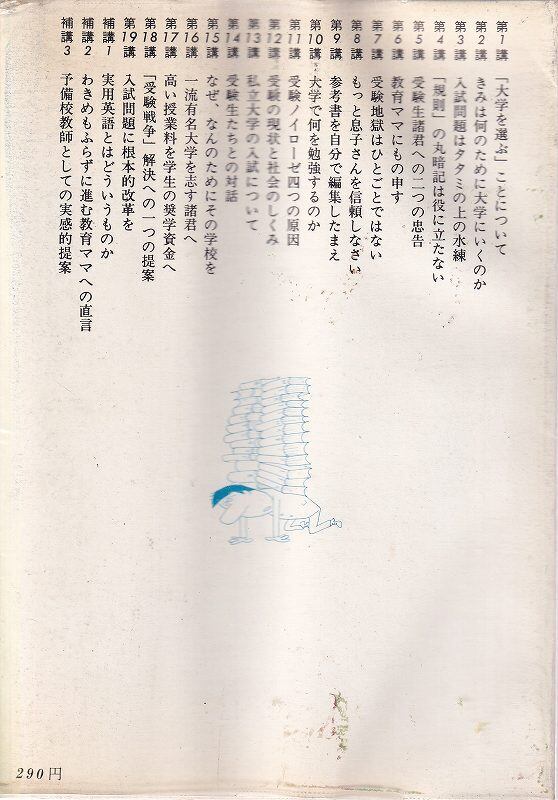 第1講 「大学を選ぶ」ことについて
第2講 きみは何のために大学にいくのか
第3講 入試問題はタタミの上の水練
第4講 「規則」の丸暗記は役に立たない
第5講 受験生諸君への二つの忠告
第6講 教育ママにもの申す
第7講 受験地獄はひとごとではない
第8講 もっと息子さんを信頼しなさい
第9講 参考書を自分で編集したまえ
第10講 大学で何を勉強するのか
第11講 受験ノイローゼ四つの原因
第12講 受験の現状と社会のしくみ
第13講 私立大学の入試について
第14講 受験生たちとの対話
第15講 なぜ、なんのためにその学校を
第16講 一流有名大学を志す諸君へ
第17講 高い授業料を学生の奨学資金へ
第18講 「受験戦争」解決への一つの提案
第19講 入試問題に根本的改革を
補講1 実用英語とはどういうものか
補講2 わきめもふらずに進む教育ママへの直言
補講3 予備校教師としての実感的提案
290円